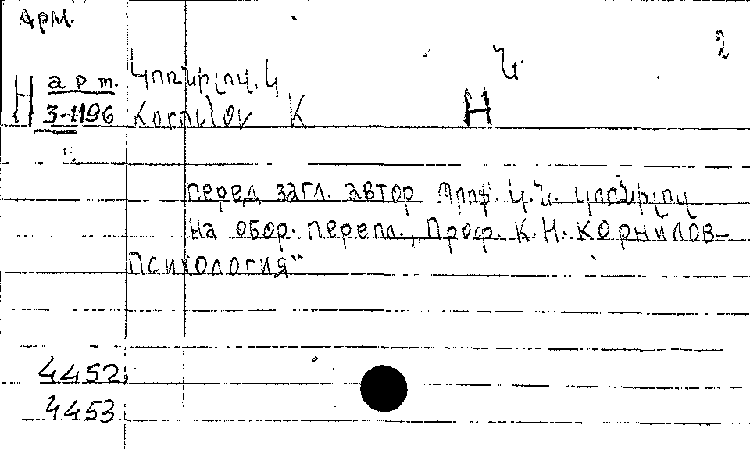 Арм.
2
Н арт. Կոռնիլով. Կ Ն
3-1196 Kornilov K Н
перед загл. автор Պրոֆ. Կ. Ն. Կոռնիլով
на обор. перепл., Проф. К. Н. Корнилов-
Психология"
4452
4453